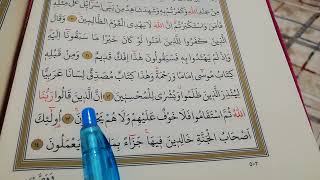 مِنْ عِندِ ٱللَّهِ وَكَفَرْتُم بِهِۦ وَشَهِدَ شَاهِدٌ مِّنۢ بَنِىٓ إِسْرَٰٓءِيلَ
فَـَٔامَنَ وَٱسْتَكْبَرْتُمْ إِنَّ ٱللَّهَ لَا يَهْدِى ٱلْقَوْمَ ٱلظَّـٰلِمِينَ ١٠ وَقَالَ
ٱلَّذِينَ كَفَرُوا۟ لِلَّذِينَ ءَامَنُوا۟ لَوْ كَانَ خَيْرًا مَّا سَبَقُونَآ إِلَيْهِ
وَإِذْ لَمْ يَهْتَدُوا۟ بِهِۦ فَسَيَقُولُونَ هَـٰذَآ إِفْكٌ قَدِيمٌ ١١ وَمِن قَبْلِهِۦ
كِتَـٰبُ مُوسَىٰٓ إِمَامًا وَرَحْمَةً وَهَـٰذَا كِتَـٰبٌ مُّصَدِّقٌ لِّسَانًا عَرَبِيًّا
لِّيُنذِرَ ٱلَّذِينَ ظَلَمُوا۟ وَبُشْرَىٰ لِلْمُحْسِنِينَ ١٢ إِنَّ ٱلَّذِينَ قَالُوا۟ رَبُّنَا
ٱللَّهُ ثُمَّ ٱسْتَقَـٰمُوا۟ فَلَا خَوْفٌ عَلَيْهِمْ وَلَا هُمْ ١٣ أُو۟لَـٰٓئِكَ
أَصْحَـٰبُ ٱلْجَنَّةِ خَـٰلِدِينَ فِيهَا جَزَآءًۢ يَعْمَلُونَ ١٤
٥٠٣